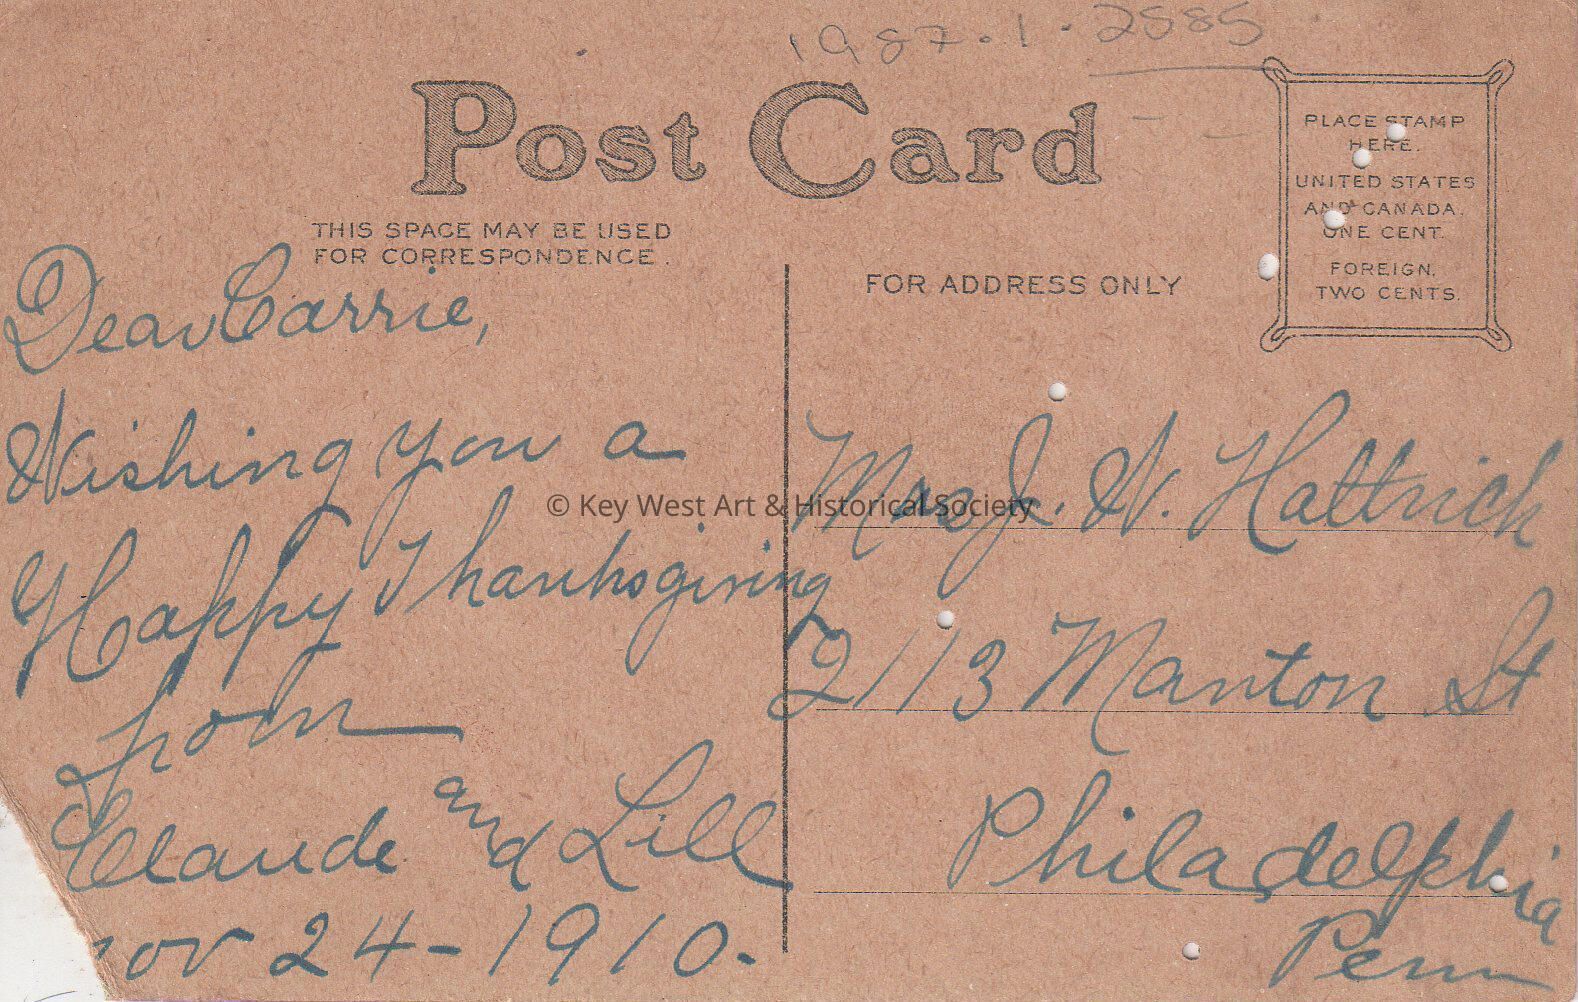 1987.1.2885
Post Card
PLACE STAMP
HERE.
UNITED STATES
AND CANADA.
ONE CENT.
FOREIGN.
TWO CENTS.
THIS SPACE MAY BE USED
FOR CORRESPONDENCE.
FOR ADDRESS ONLY
Dear Carrie,
Wishing you a
Happy Thanksgiving
from
Claude and Lill
Nov 24-1910.
Mrs J. W. Hattrick
2113 Manton St
Philadelphia
Penn
© Key West Art & Historical Society